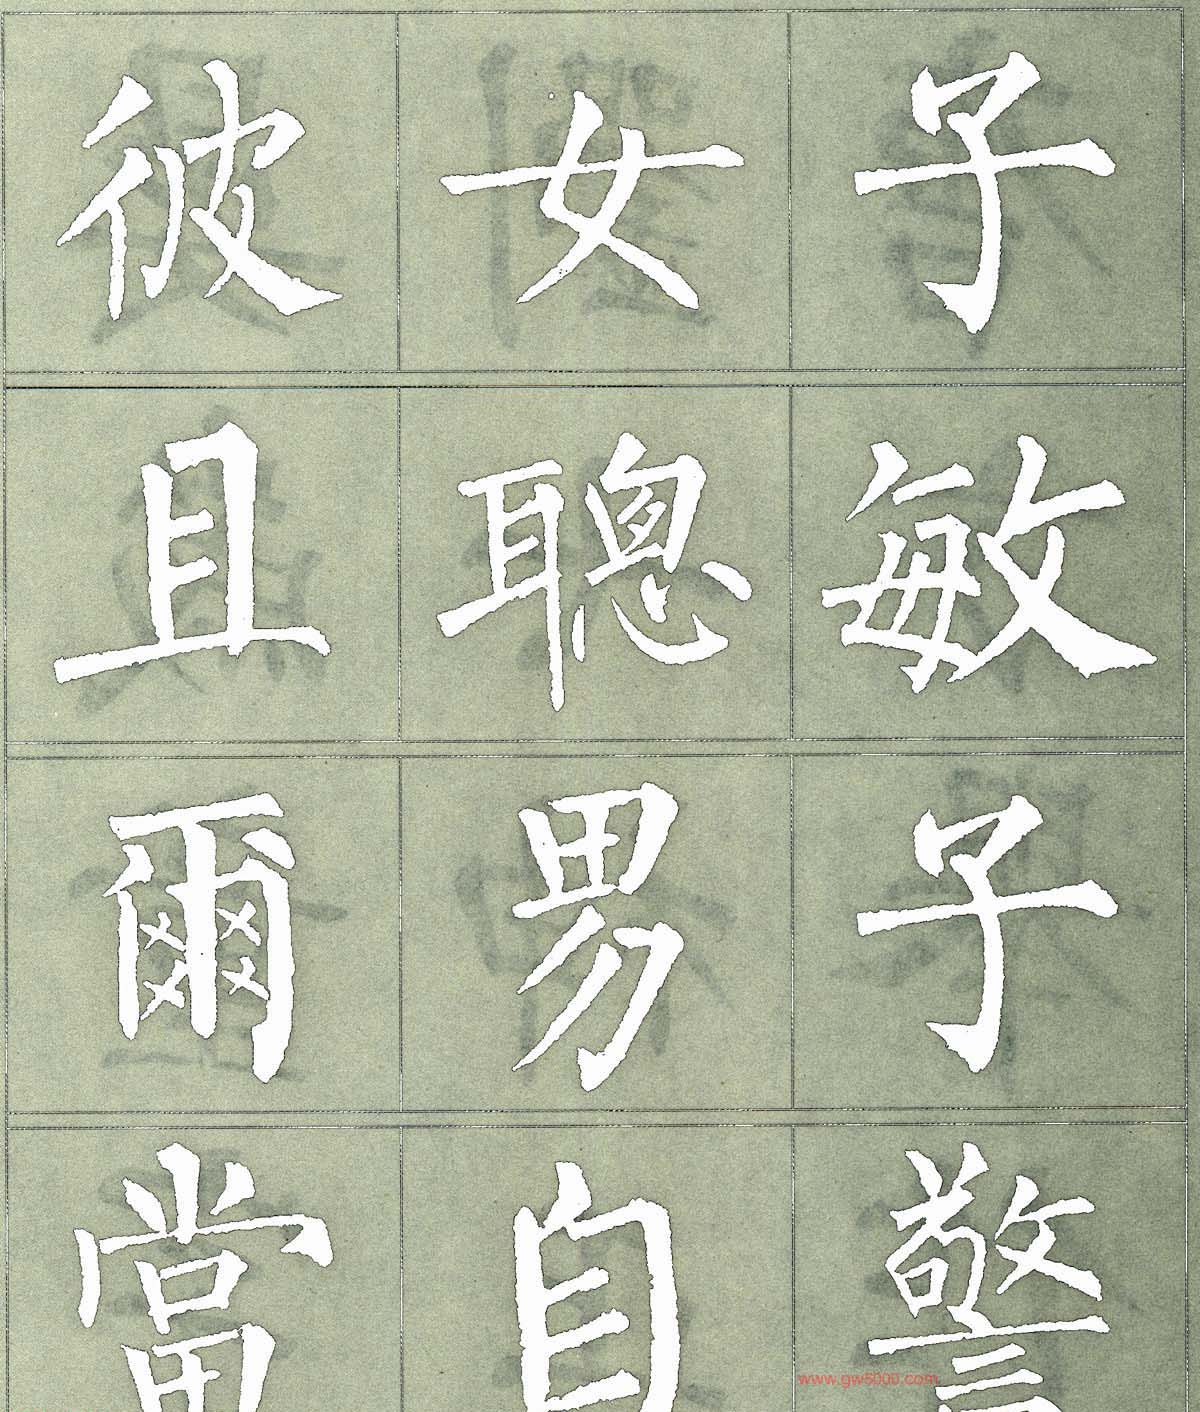 彼女子
且聰敏
爾男子
當自警
www.gw5000.com